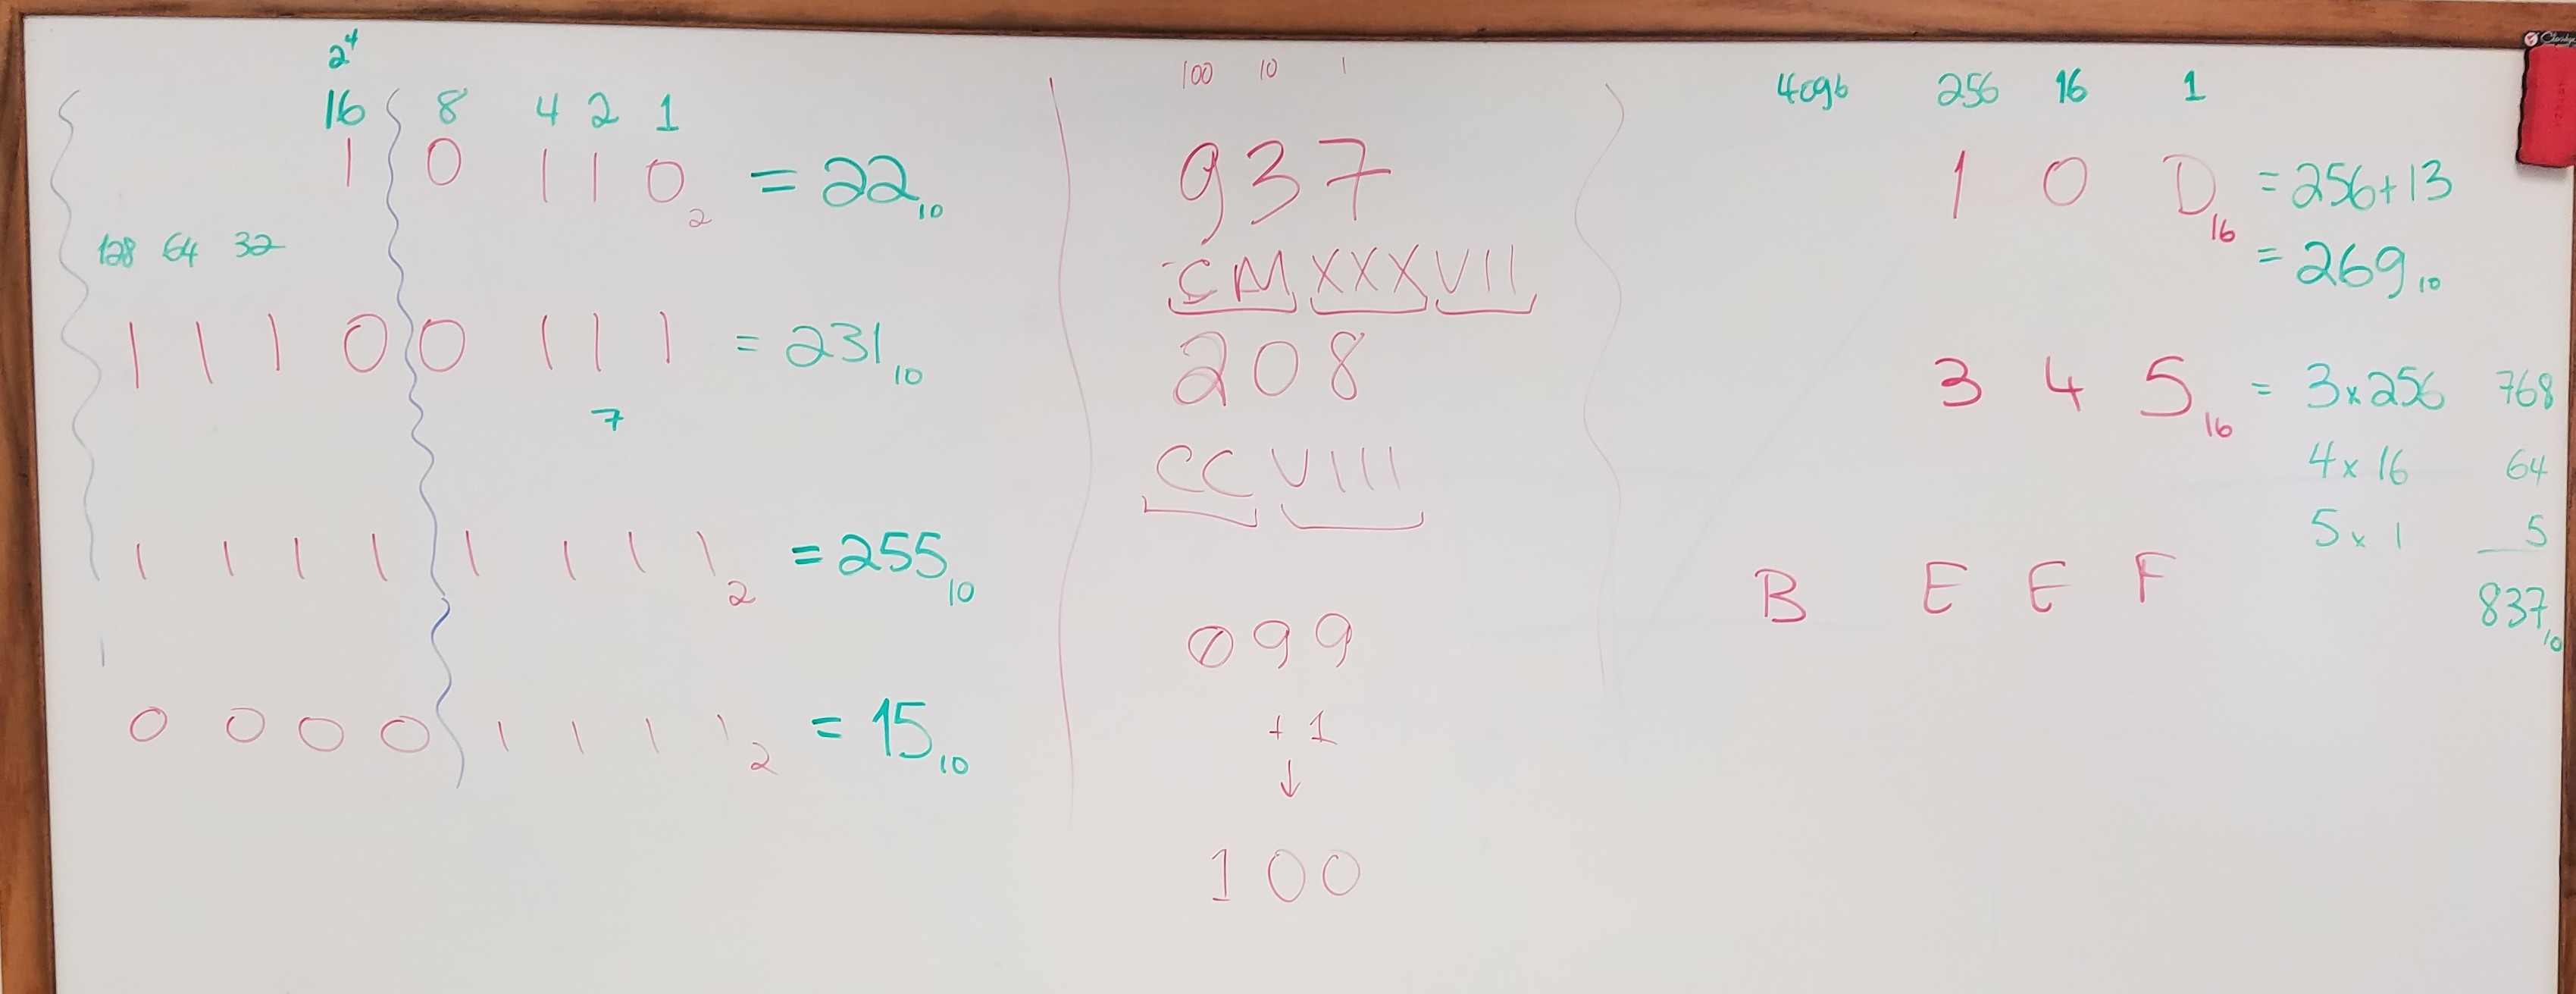 2⁴
16 8 4 2 1
1 0 1 1 0₂ = 22₁₀
128 64 32
1 1 1 0 0 1 1 1 = 231₁₀
7
1 1 1 1 1 1 1 1₂ = 255₁₀
0 0 0 0 1 1 1 1₂ = 15₁₀
100 10 1
937
CMXXXVII
208
CCVIII
099
+1
↓
100
4096 256 16 1
1 0 D₁₆ = 256+13
= 269₁₀
3 4 5₁₆ = 3x256 768
4x16 64
5x1 5
837₁₀
B E E F